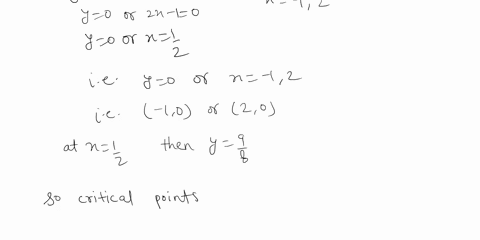 x=-1, 2
y=0 or 2x-1=0
y=0 or x=1/2
i.e. y=0 or x=-1, 2
i.e. (-1,0) or (2,0)
at x=1/2 then y=9/8
so critical points